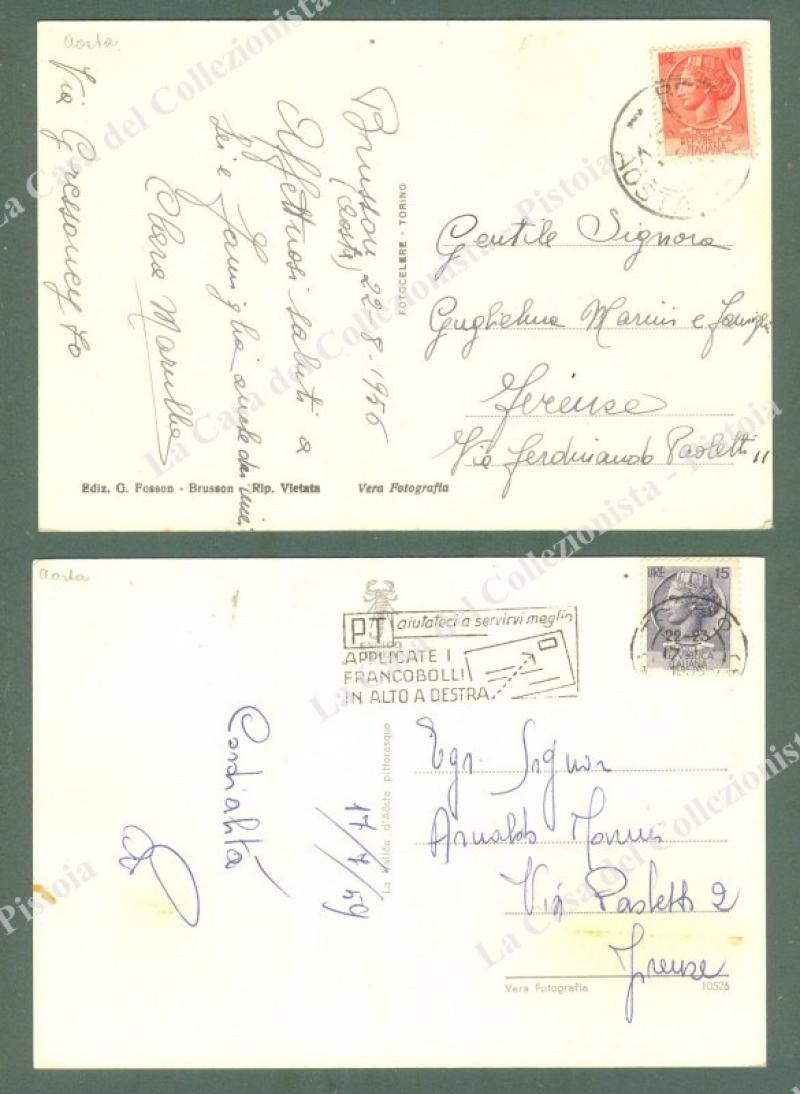 aosta
Via Gressoney 20
Brusson 22-8-1956
(Aosta)
Affettuosi saluti a
Lei e famiglia anche dai miei
Clara
FOTOCELERE - TORINO
LIRE 10
REPUBBLICA
ITALIANA
AOSTA
Gentile Signora
Guglielma Marini e famiglia
Firenze
Via Ferdinando Paoletti 11
Ediz. G. Fosson - Brusson - Rip. Vietata
Vera Fotografia
aosta
PT aiutateci a servirvi meglio
APPLICATE I
FRANCOBOLLI
IN ALTO A DESTRA
LIRE 15
22-23
ITALIANA
Cordialità
17/7/59
La Vallée d'Aôste pittoresque
Egr. Signor
Arnaldo Marini
Via Paoletti 2
Firenze
Vera Fotografia
10526
La Casa del Collezionista - Pistoia